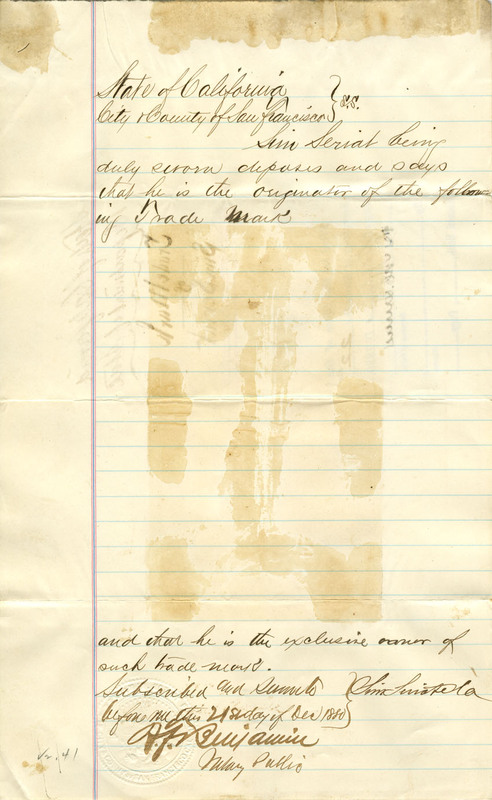 State of California
City & County of San Francisco } S.S.
Sim Seriat being
duly sworn deposes and says
that he is the originator of the follow
ing Trade Mark
and that he is the exclusive owner of
such trade mark.
Subscribed and Sworn to
before me this 21st day of Dec 1880
Benjamin
Notary Public
No. 41